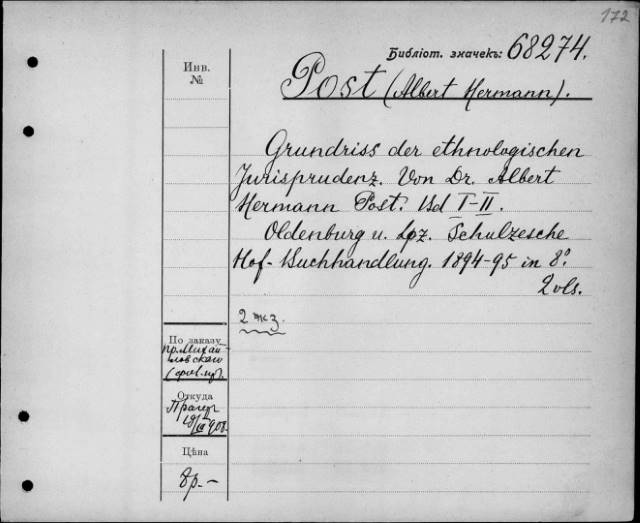 172
Библіот. значекъ: 68274.
Инв.
№
Post (Albert Hermann).
Grundriss der ethnologischen
Jurisprudenz. Von Dr. Albert
Hermann Post. Bd I-II.
Oldenburg u. Lpz. Schulzesche
Hof-Buchhandlung. 1894-95 in 8°.
2 vls.
2 экз.
По заказу
пр. Михай-
ловскаго
Откуда
Цѣна
8р.-